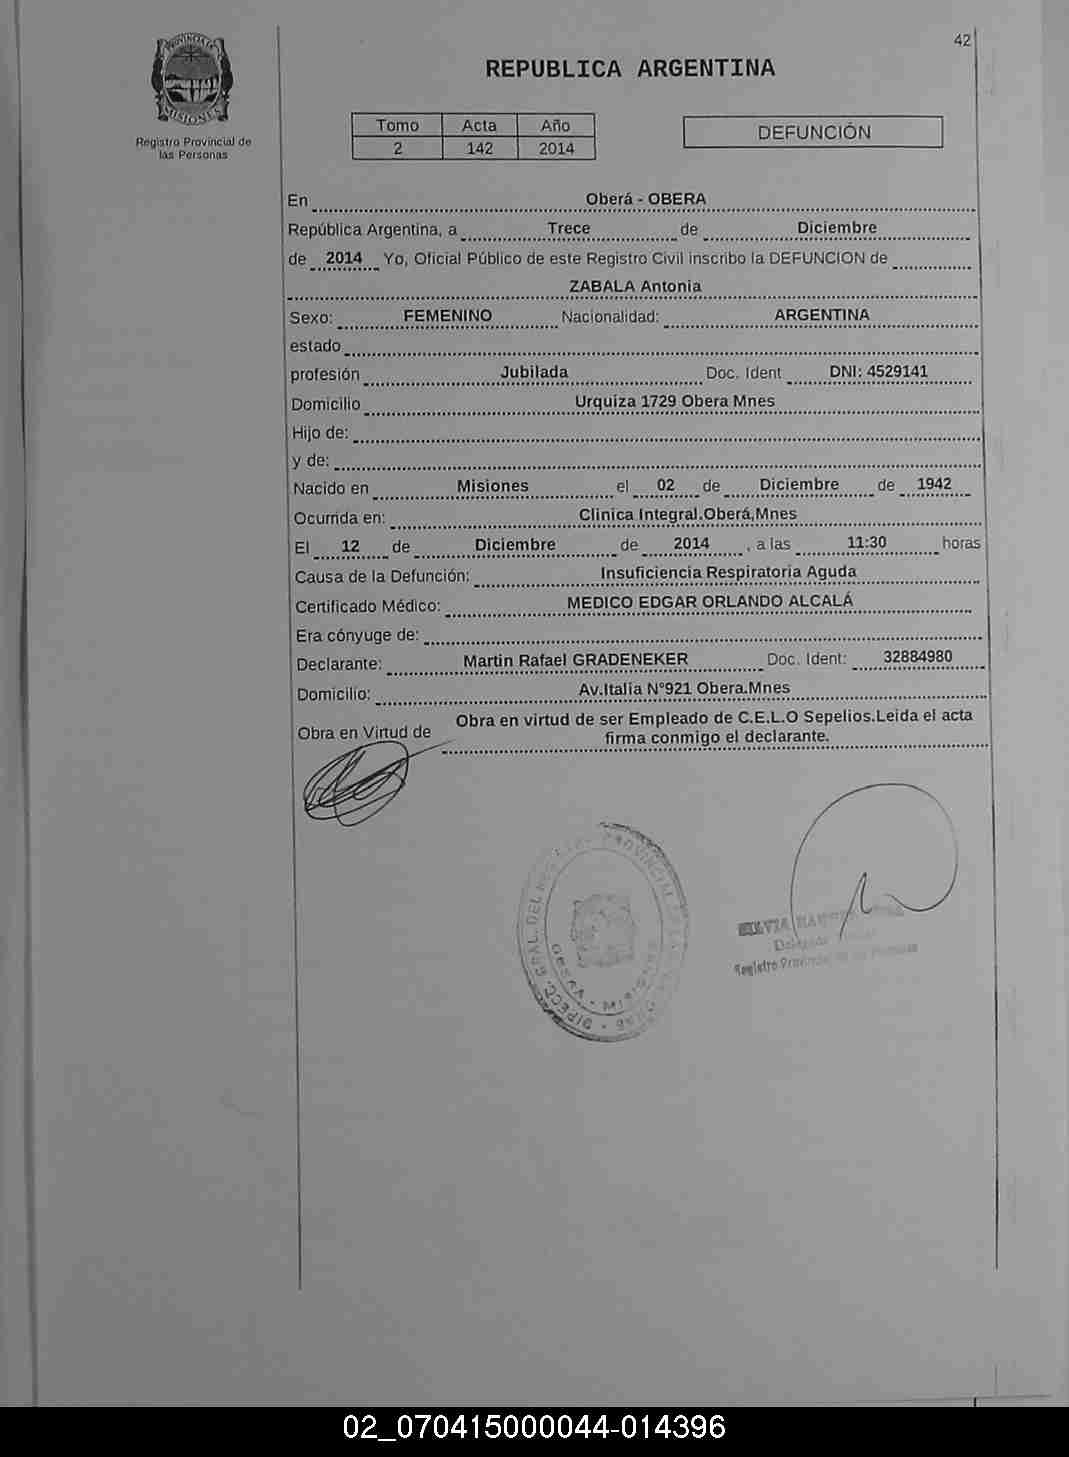 42
PROVINCIA DE
MISIONES
Registro Provincial de
las Personas
REPUBLICA ARGENTINA
Tomo Acta Año
2 142 2014
DEFUNCIÓN
En Oberá - OBERA
República Argentina, a Trece de Diciembre
de 2014 Yo, Oficial Público de este Registro Civil inscribo la DEFUNCION de
ZABALA Antonia
Sexo: FEMENINO Nacionalidad: ARGENTINA
estado
profesión Jubilada Doc. Ident DNI: 4529141
Domicilio Urquiza 1729 Obera Mnes
Hijo de:
y de:
Nacido en Misiones el 02 de Diciembre de 1942
Ocurrida en: Clinica Integral.Oberá,Mnes
El 12 de Diciembre de 2014 , a las 11:30 horas
Causa de la Defunción: Insuficiencia Respiratoria Aguda
Certificado Médico: MEDICO EDGAR ORLANDO ALCALÁ
Era cónyuge de:
Declarante: Martin Rafael GRADENEKER Doc. Ident: 32884980
Domicilio: Av.Italia N°921 Obera.Mnes
Obra en Virtud de Obra en virtud de ser Empleado de C.E.L.O Sepelios.Leida el acta
firma conmigo el declarante.
DIRECC. GRAL. DEL PROVINCIAL
OBERA - MISIONES
SILVIA
Registro Provincial
02_070415000044-014396